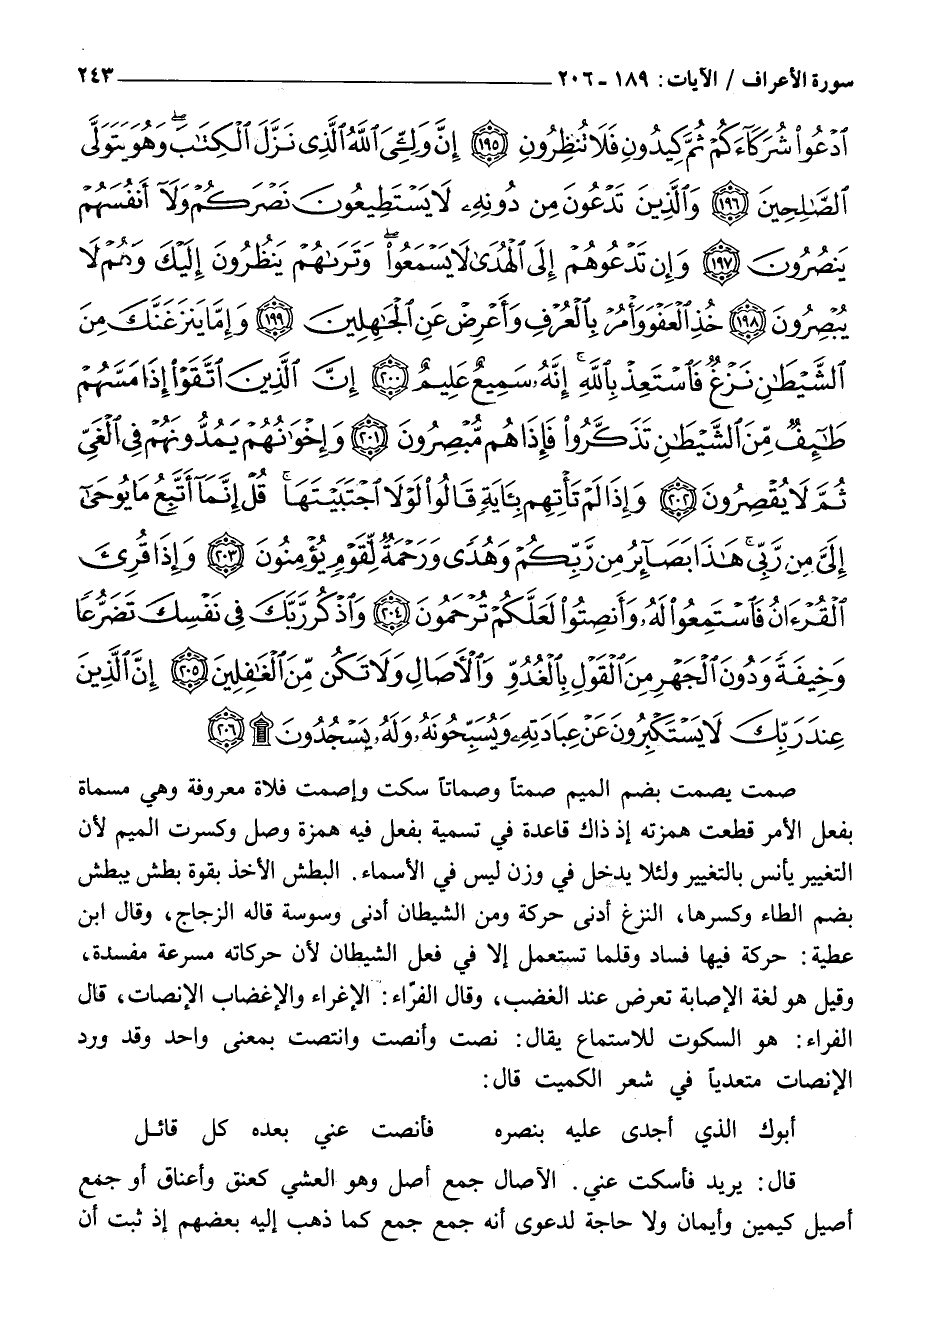 سورة الأعراف / الآيات: ١٨٩ - ٢٠٦ ٢٤٣
ٱدۡعُواْ شُرَكَآءَكُمۡ ثُمَّ كِيدُونِ فَلَا تُنظِرُونِ ١٩٥ إِنَّ وَلِـِّۧيَ ٱللَّهُ ٱلَّذِي نَزَّلَ ٱلۡكِتَٰبَۖ وَهُوَ يَتَوَلَّى
ٱلصَّٰلِحِينَ ١٩٦ وَٱلَّذِينَ تَدۡعُونَ مِن دُونِهِۦ لَا يَسۡتَطِيعُونَ نَصۡرَكُمۡ وَلَآ أَنفُسَهُمۡ
يَنصُرُونَ ١٩٧ وَإِن تَدۡعُوهُمۡ إِلَى ٱلۡهُدَىٰ لَا يَسۡمَعُواْۖ وَتَرَىٰهُمۡ يَنظُرُونَ إِلَيۡكَ وَهُمۡ لَا
يُبۡصِرُونَ ١٩٨ خُذِ ٱلۡعَفۡوَ وَأۡمُرۡ بِٱلۡعُرۡفِ وَأَعۡرِضۡ عَنِ ٱلۡجَٰهِلِينَ ١٩٩ وَإِمَّا يَنزَغَنَّكَ مِنَ
ٱلشَّيۡطَٰنِ نَزۡغٞ فَٱسۡتَعِذۡ بِٱللَّهِۚ إِنَّهُۥ سَمِيعٌ عَلِيمٌ ٢٠٠ إِنَّ ٱلَّذِينَ ٱتَّقَوۡاْ إِذَا مَسَّهُمۡ
طَٰٓئِفٞ مِّنَ ٱلشَّيۡطَٰنِ تَذَكَّرُواْ فَإِذَا هُم مُّبۡصِرُونَ ٢٠١ وَإِخۡوَٰنُهُمۡ يَمُدُّونَهُمۡ فِي ٱلۡغَيِّ
ثُمَّ لَا يُقۡصِرُونَ ٢٠٢ وَإِذَا لَمۡ تَأۡتِهِم بِـَٔايَةٖ قَالُواْ لَوۡلَا ٱجۡتَبَيۡتَهَاۚ قُلۡ إِنَّمَآ أَتَّبِعُ مَا يُوحَىٰٓ
إِلَيَّ مِن رَّبِّيۚ هَٰذَا بَصَآئِرُ مِن رَّبِّكُمۡ وَهُدٗى وَرَحۡمَةٞ لِّقَوۡمٖ يُؤۡمِنُونَ ٢٠٣ وَإِذَا قُرِئَ
ٱلۡقُرۡءَانُ فَٱسۡتَمِعُواْ لَهُۥ وَأَنصِتُواْ لَعَلَّكُمۡ تُرۡحَمُونَ ٢٠٤ وَٱذۡكُر رَّبَّكَ فِي نَفۡسِكَ تَضَرُّعٗا
وَخِيفَةٗ وَدُونَ ٱلۡجَهۡرِ مِنَ ٱلۡقَوۡلِ بِٱلۡغُدُوِّ وَٱلۡأٓصَالِ وَلَا تَكُن مِّنَ ٱلۡغَٰفِلِينَ ٢٠٥ إِنَّ ٱلَّذِينَ
عِندَ رَبِّكَ لَا يَسۡتَكۡبِرُونَ عَنۡ عِبَادَتِهِۦ وَيُسَبِّحُونَهُۥ وَلَهُۥ يَسۡجُدُونَ ۩ ٢٠٦
صمت يصمت بضم الميم صمتاً وصماتاً سكت وإصمت فلاة معروفة وهي مسماة
بفعل الأمر قطعت همزته إذ ذاك قاعدة في تسمية بفعل فيه همزة وصل وكسرت الميم لأن
التغيير يأنس بالتغيير ولئلا يدخل في وزن ليس في الأسماء. البطش الأخذ بقوة بطش يبطش
بضم الطاء وكسرها، النزغ أدنى حركة ومن الشيطان أدنى وسوسة قاله الزجاج، وقال ابن
عطية: حركة فيها فساد وقلما تستعمل إلا في فعل الشيطان لأن حركاته مسرعة مفسدة،
وقيل هو لغة الإصابة تعرض عند الغضب، وقال الفرّاء: الإغراء والإغضاب الإنصات، قال
الفراء: هو السكوت للاستماع يقال: نصت وأنصت وانتصت بمعنى واحد وقد ورد
الإنصات متعدياً في شعر الكميت قال:
أبوك الذي أجدى عليه بنصره فأنصت عني بعده كل قائل
قال: يريد فأسكت عني. الآصال جمع أصل وهو العشي كعنق وأعناق أو جمع
أصيل كيمين وأيمان ولا حاجة لدعوى أنه جمع جمع كما ذهب إليه بعضهم إذ ثبت أن